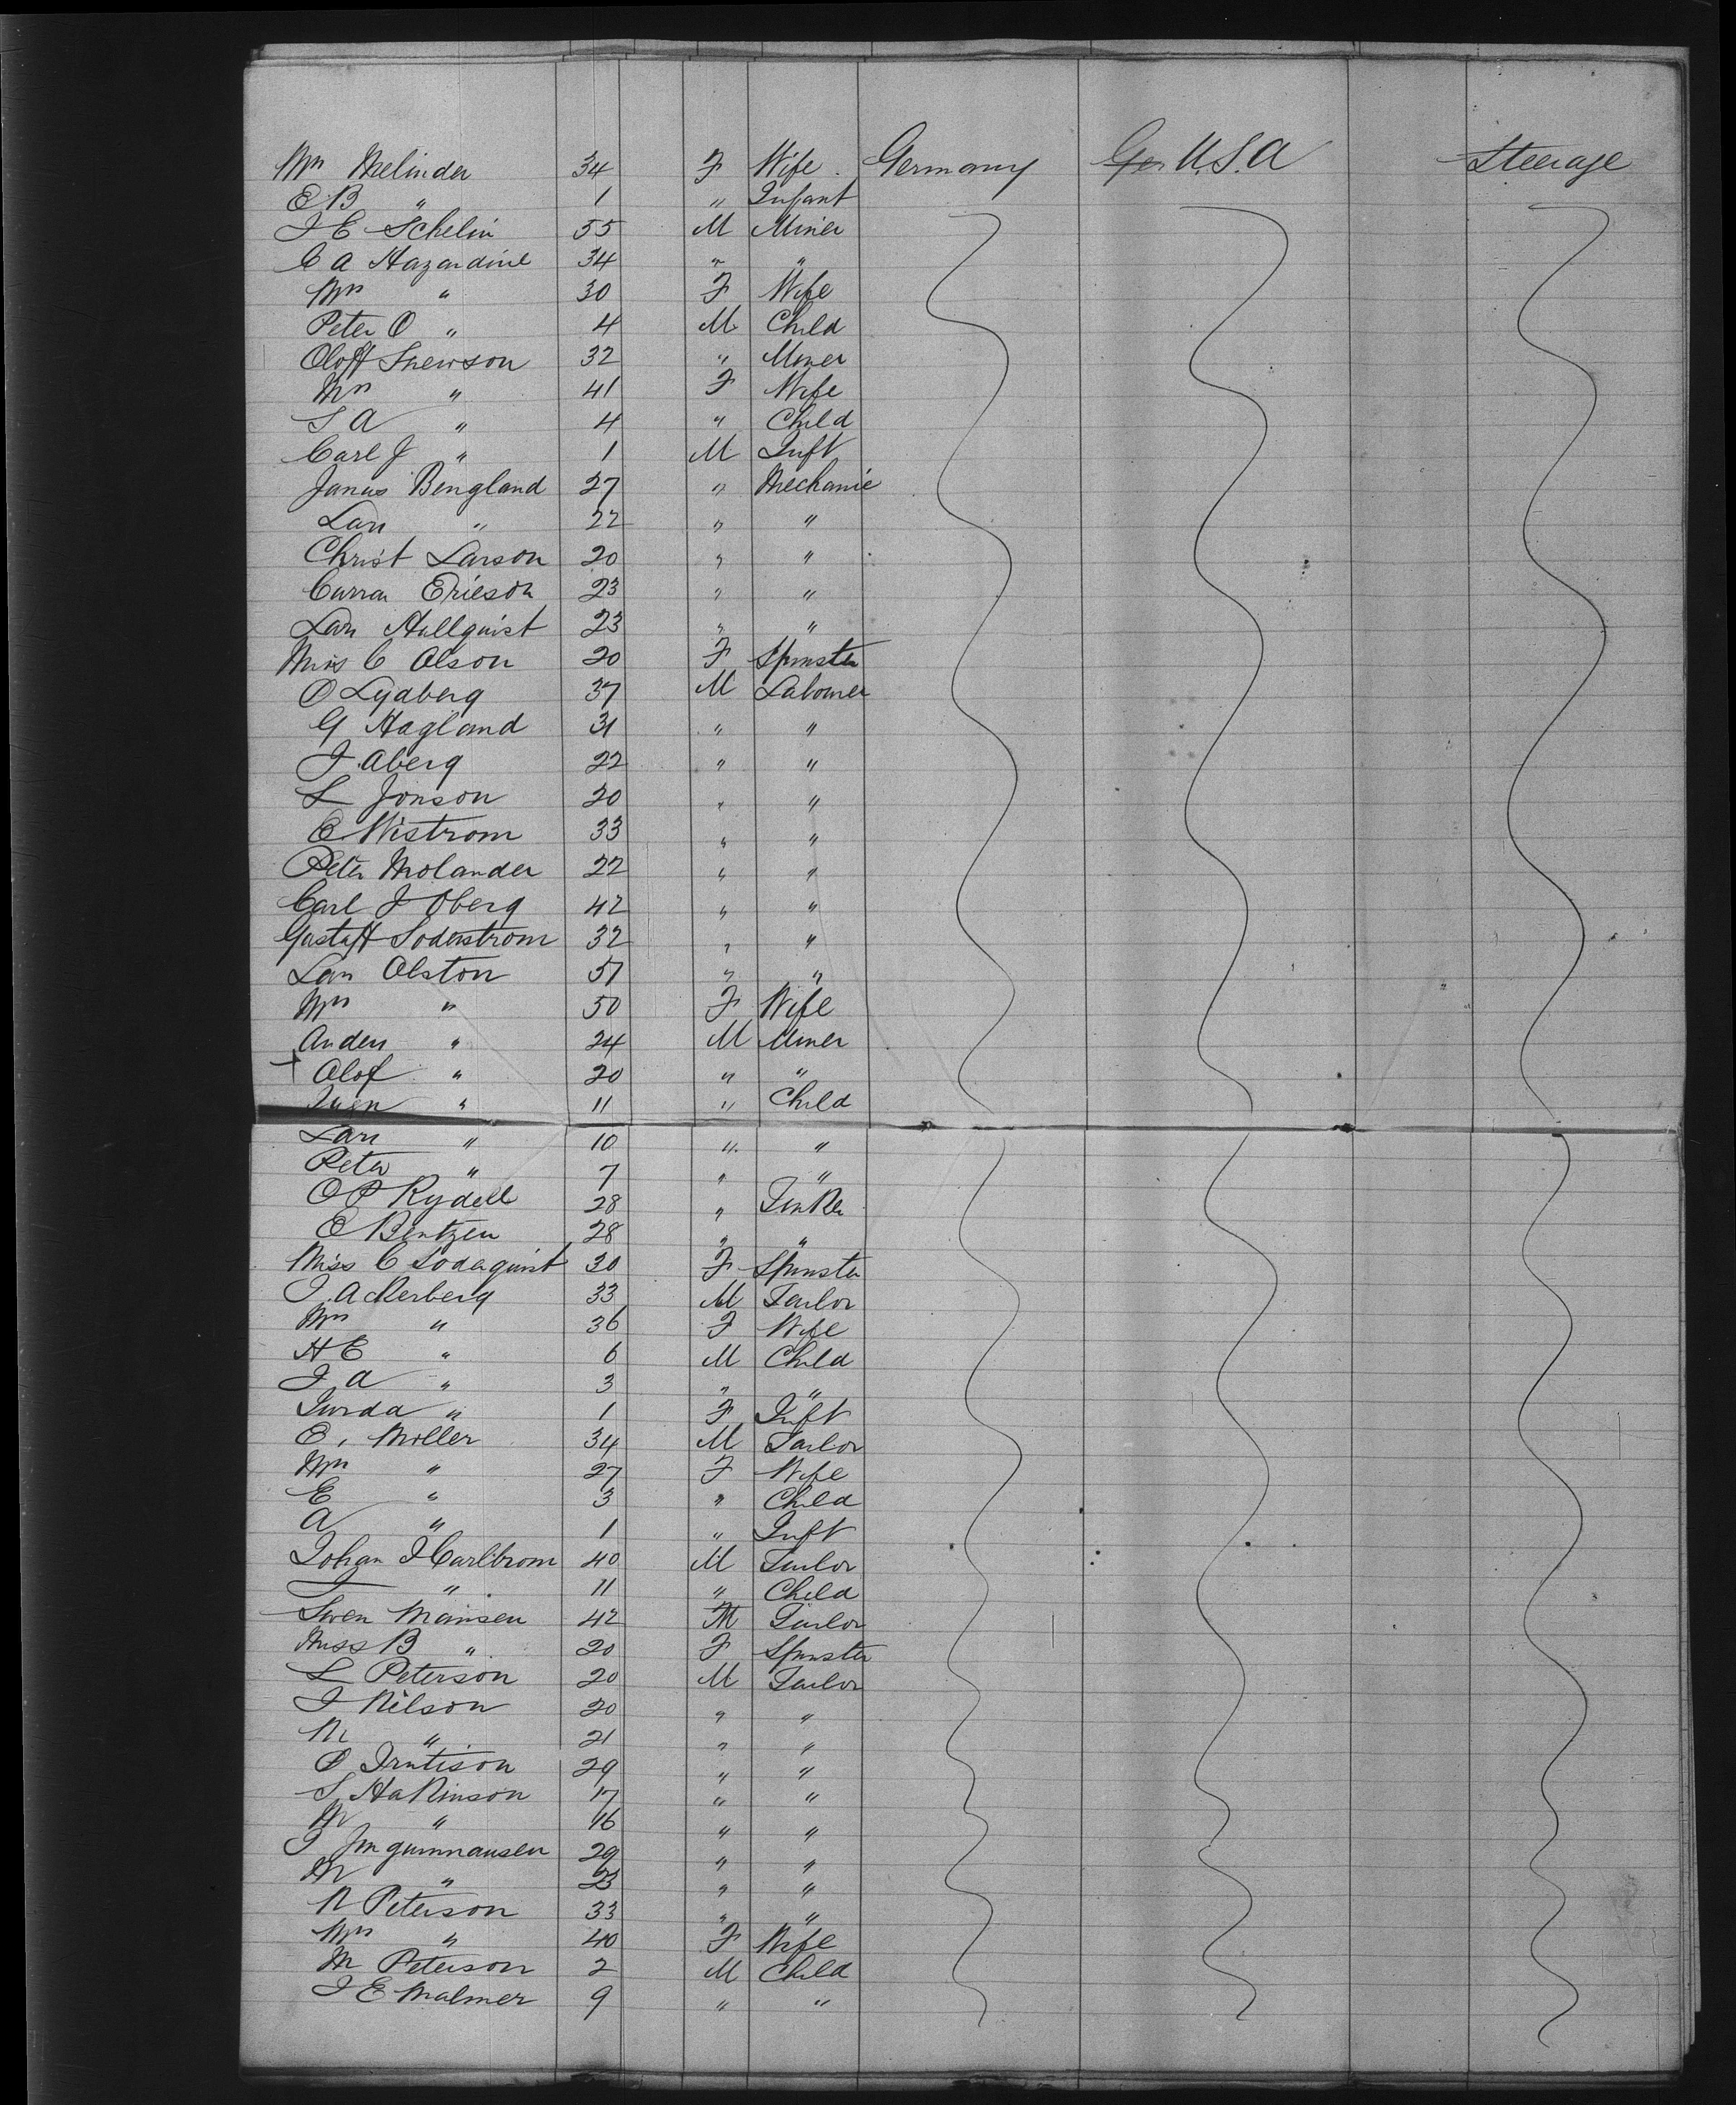 Mrs Melinder 34 F Wife Germany Ger U.S.A Steerage
E B " 1 " Infant
J E Schelin 55 M Miner
C A Hazardine 34 " "
Mrs " 30 F Wife
Peter O " 4 M Child
Oloff Snewson 32 " Miner
Mrs " 41 F Wife
S A " 4 " Child
Carl J " 1 M Inft
Janus Bengland 27 " Mechanic
Lars " 22 " "
Christ Larson 20 " "
Ericson 23 " "
Lars Hallquist 23 " "
Miss C Olson 20 F Spinster
O Lydberg 37 M Labourer
G Hagland 31 " "
J. Aberg 22 " "
L Jonson 20 " "
E Wistrom 33 " "
Peter Molander 22 " "
Carl J Oberg 42 " "
Gustaff Soderstrom 32 " "
Lars Olston 51 " "
Mrs " 50 F Wife
Anders " 24 M Miner
+ Olof " 20 " "
Swen " 11 " Child
Lars " 10 " "
Peter " 7 " "
O P Rydell 28 " Tinker
E Bentzen 28 " "
Miss C Soderquist 30 F Spinster
J. Ackerberg 33 M Tailor
Mrs " 36 F Wife
H E " 6 M Child
J A " 3 " "
" 1 F Inft
E. Moller 34 M Tailor
Mrs " 27 F Wife
E " 3 " Child
A " 1 " Inft
Johan J Carlbrom 40 M Tailor
" 11 " Child
Swen Mansen 42 M Tailor
Miss B " 20 F Spinster
L Peterson 20 M Tailor
J Nilson 20 " "
N " 21 " "
P 29 " "
S. Hakinson 17 " "
N " 16 " "
J 29 " "
M " 23 " "
N Peterson 33 " "
Mrs " 40 F Wife
M Peterson 2 M Child
J E Malmer 9 " "